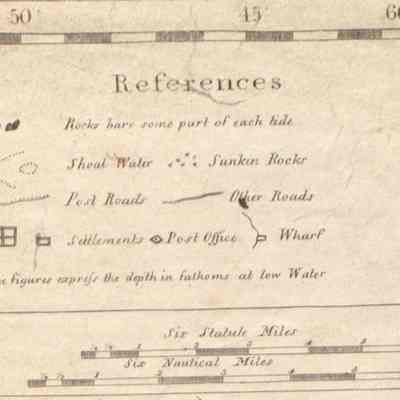 50 45 60
References
Rocks bare some part of each tide
Shoal Water Sunken Rocks
Post Roads Other Roads
Settlements Post Office Wharf
figures express the depth in fathoms at low Water
Six Statute Miles
Six Nautical Miles